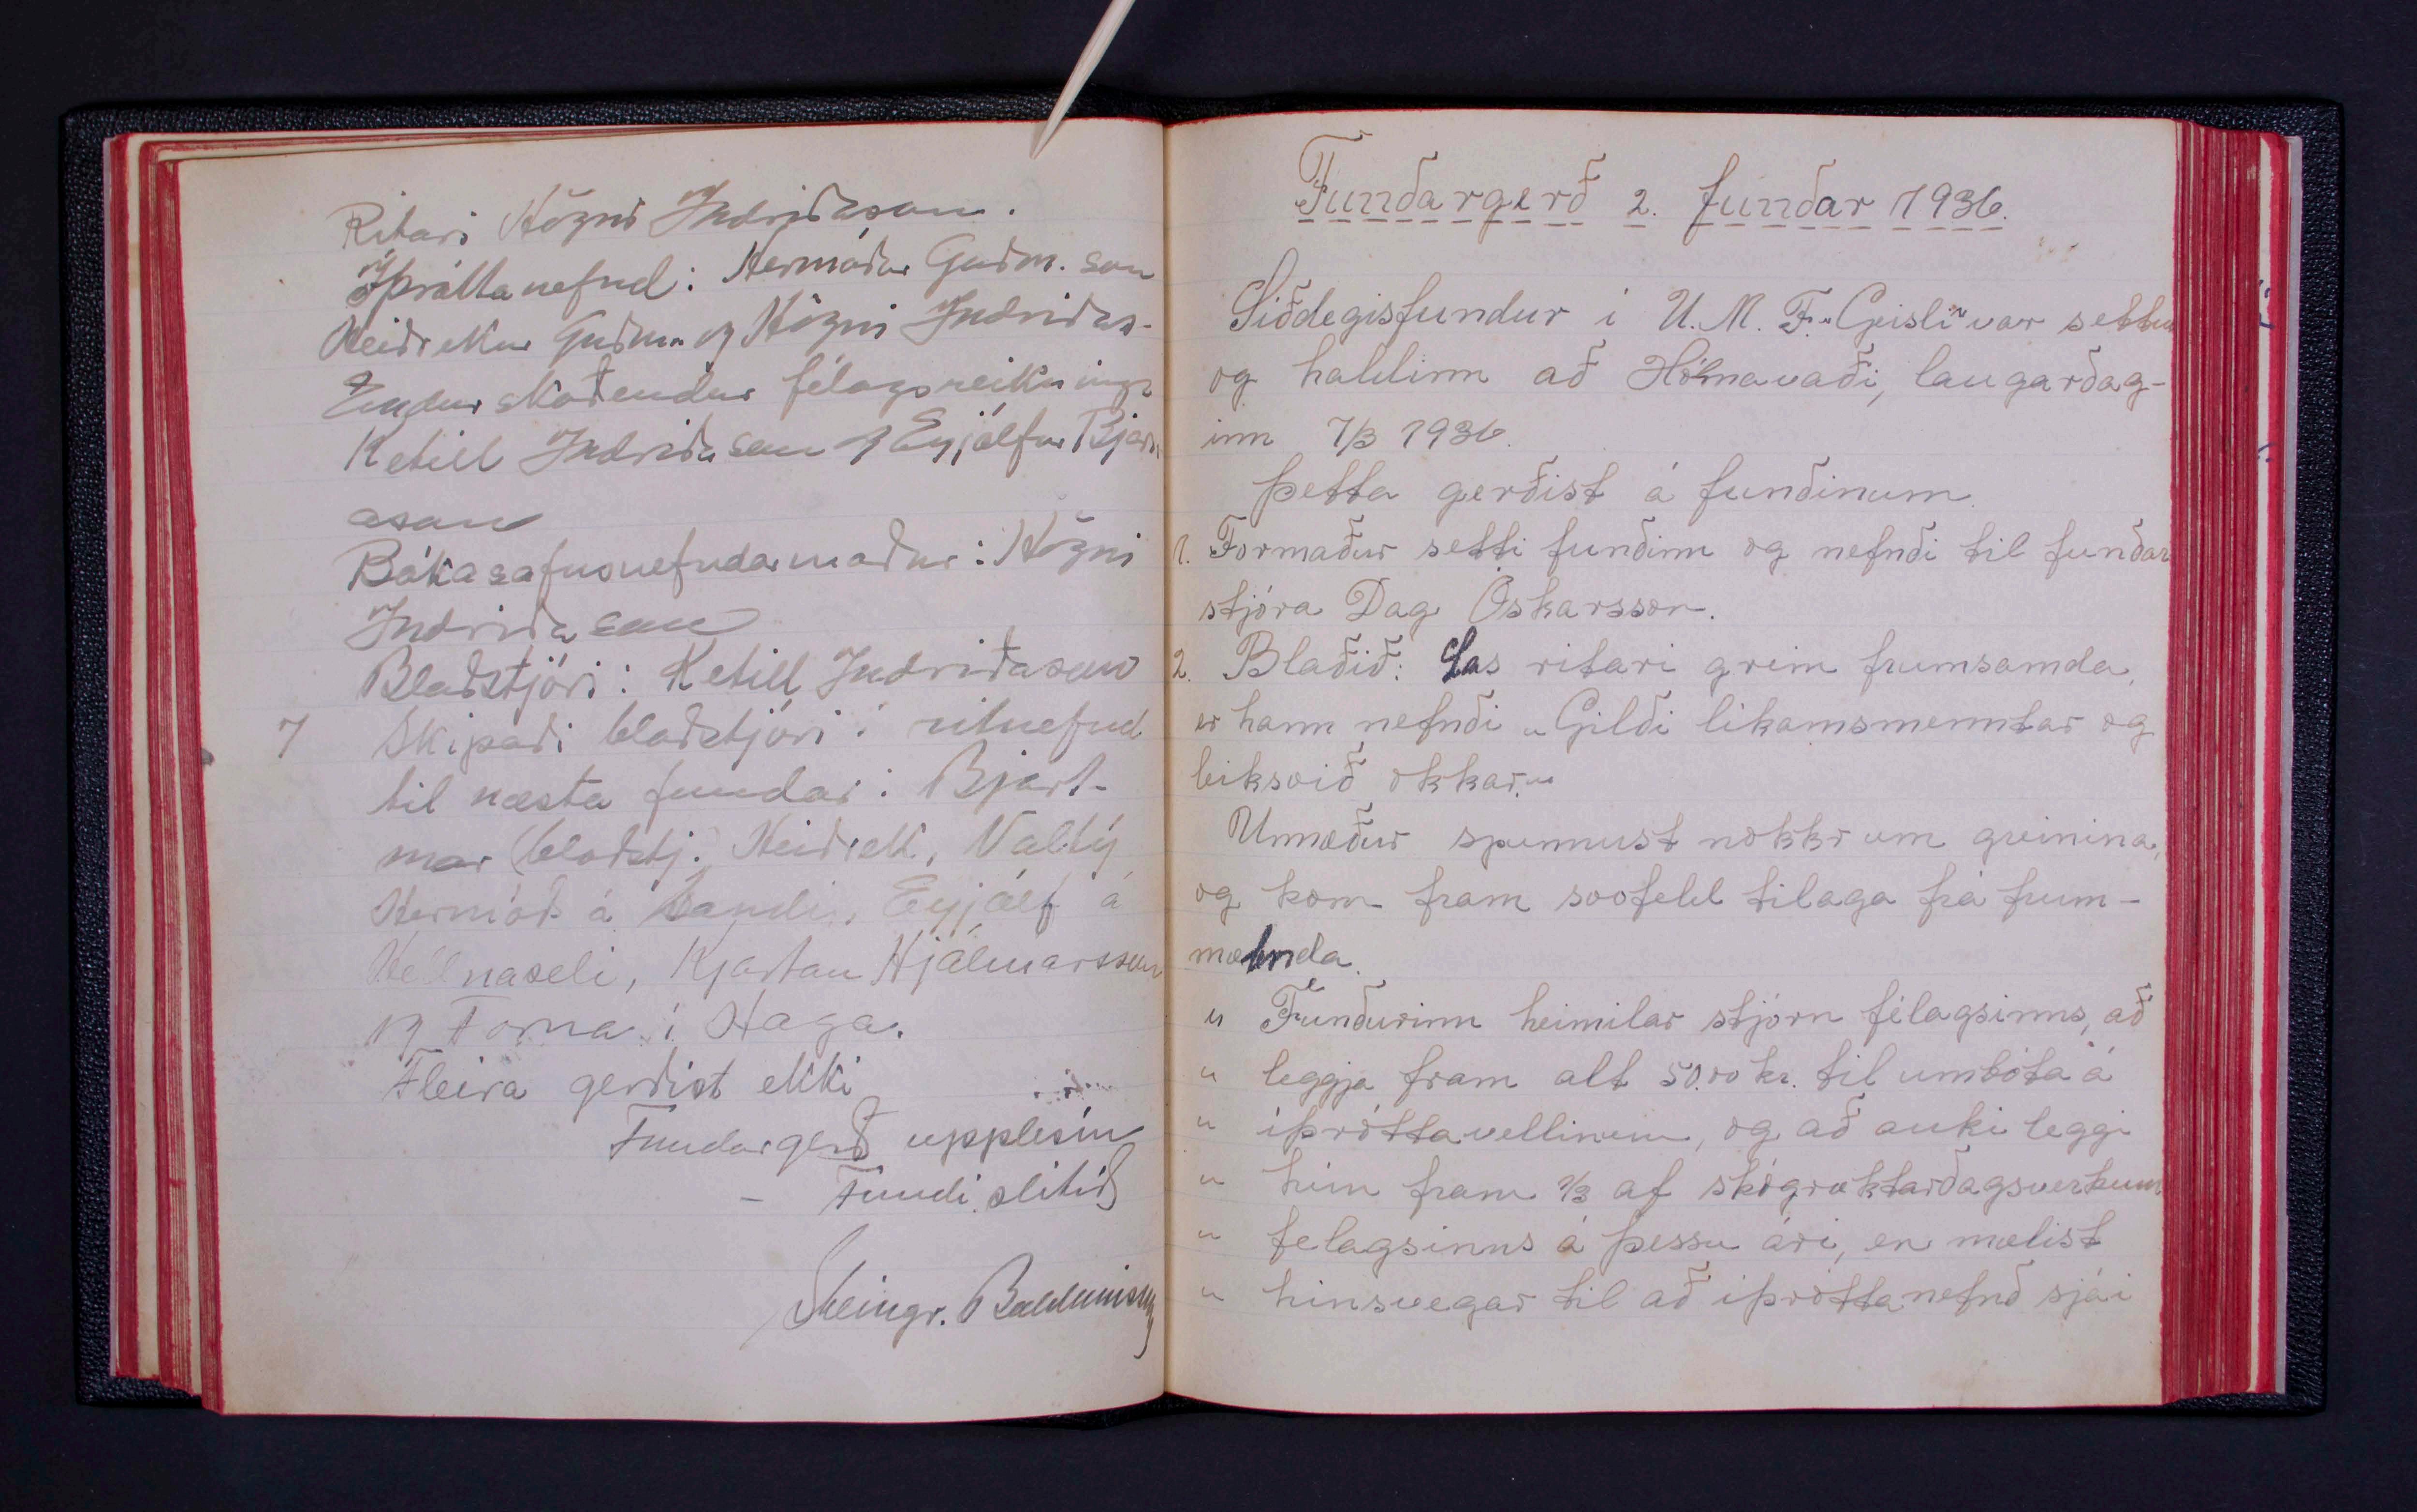 Ritari Högni Indriðason.
Íþróttanefnd: Hermóður Guðm. son
Heiðrekur Guðm. og Högni Indriðas-
Endurskoðendur félagsreikninga
Ketill Indriðason og Eyjólfur Bjarn
ason
Bókasafnsnefndarmaður: Högni
Indriðason
Blaðstjóri: Ketill Indriðason
7 Skipaði blaðstjóri í ritnefnd
til næsta fundar: Bjart-
mar (blaðstj.) Heiðrek, Valtý
Hermóð á Sandi, Eyjólf á
Hellnaseli, Kjartan Hjálmarsson
og Forna í Haga.
Fleira gerðist ekki
Fundargerð upplesin
- Fundi slitið
Steingr. Baldvinsson
Fundargerð 2. fundar 1936.
Siðdegisfundur i U. M. F. "Geisli" var settur
og haldinn að Hólmavaði, laugardag-
inn 7/3 1936.
Þetta gerðist á fundinum.
1. Formaður setti fundinn og nefndi til fundar
stjóra Dag Óskarsson.
2. Blaðið: Las ritari grein frumsamda,
er hann nefndi "Gildi likamsmenntar og
leiksvið okkar."
Umræður spunnust nokkr um greinina,
og kom fram svofeld tilaga frá frum-
mælenda.
" Fundurinn heimilar stjórn félagsinns, að
" leggja fram alt 50.00 kr. til umbóta á
" íþróttavellinum, og að auki leggi
" hún fram 1/3 af skógræktardagsverkum
" felagsinns á þessu ári, en mælist
" hinsvegar til að iþróttanefnd sjái